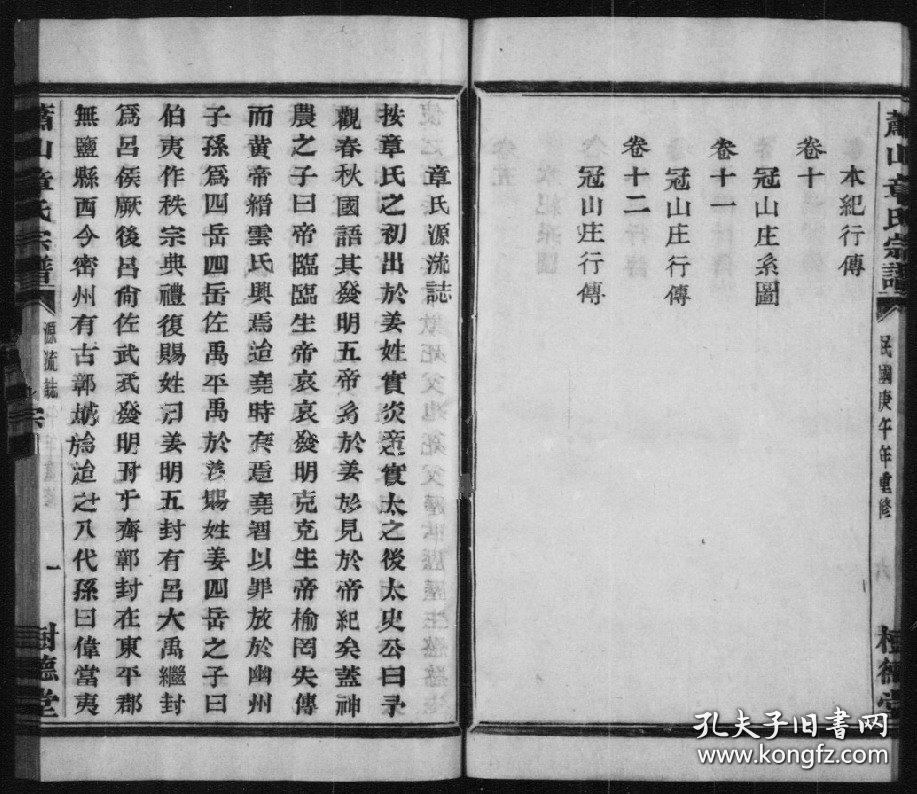 蕭山章氏宗譜
民國庚午年重修
德堂
本紀行傳
卷十
冠山庄系圖
卷十一
冠山庄行傳
卷十二
冠山庄行傳
章氏源流誌
按章氏之初出於姜姓實炎帝實太之後太史公曰予
觀春秋國語其發明五帝系於姜於見於帝紀矣蓋神
農之子曰帝臨臨生帝哀哀發明克克生帝榆罔失傳
而黄帝縉雲氏興焉迨堯時有焉堯習以罪放於幽州
子孫爲四岳四岳佐禹平禹於善賜姓姜四岳之子曰
伯夷作秩宗典禮復賜姓曰姜明五封有呂大禹繼封
爲呂侯厥後呂尙佐武武發明封于齊鄣封在東平郡
無鹽縣西今密州有古鄣城於迨之八代孫曰偉當夷
蕭山章氏宗譜
源流誌
一
樹德堂
孔夫子旧书网
www.kongfz.com